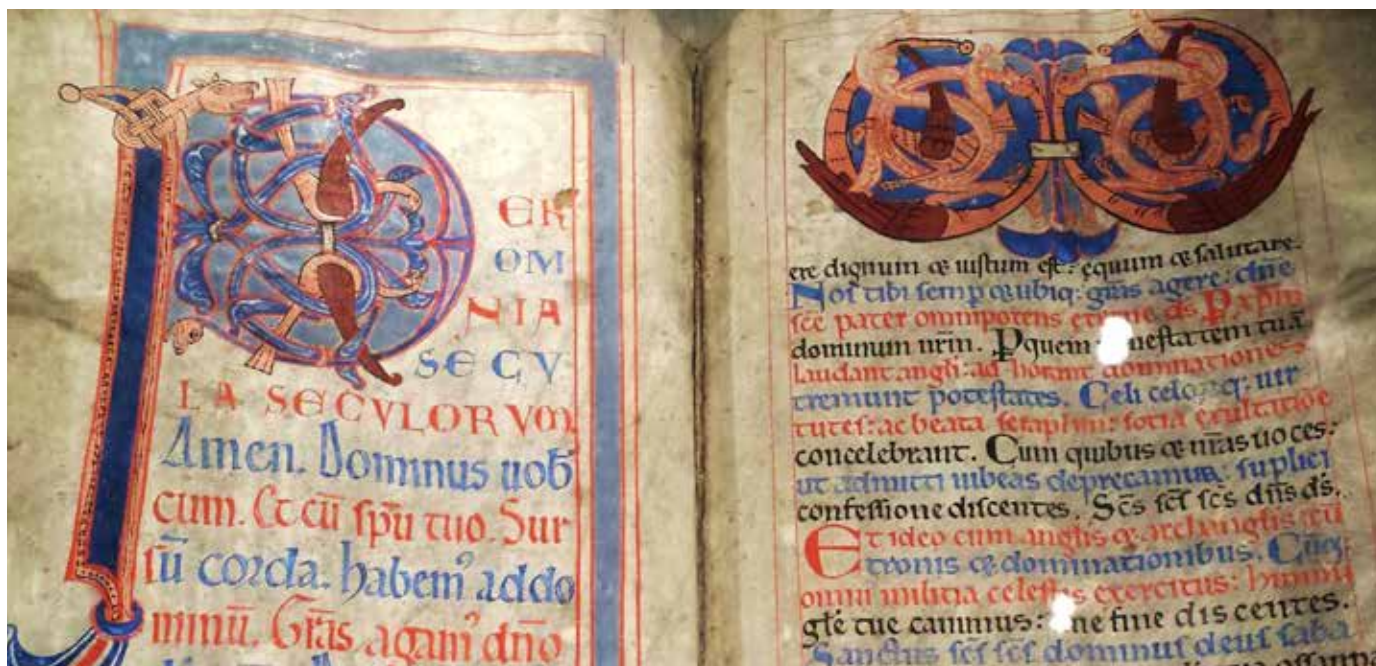 P
ER
OM
NIA
SECV
LA SECVLORVM
Amen. Dominus uob
cum. Et cū spū tuo. Sur
sū corda. habemꝰ addo
minū. Gr̄as agamꝰ dn̄o
ere dignum & iustum est: equum & salutare.
Nos tibi semꝑ & ubiqꝫ gr̄as agere: dn̄e
sc̄e pater omnipotens ds̄ ꝑ xp̄m
dominum nr̄m. Ꝑquem tuā
laudant angl̄i: adorant dominationes
tremunt potestates. Celi celorꝫ qꝫ uir
tutes: ac beata seraphin: sotia exultatione
concelebrant. Cum quibus & nr̄as uoces:
ut admitti iubeas deprecamur: suplici
confessione discentes. Sc̄s sc̄s sc̄s dn̄s ds̄.
Et ideo cum angl̄is & archangl̄is cū
tronis & dominationibus. Cūqꝫ
omni militia celestis exercitus: hymnū
gl̄e tue canimus: ne fine discentes.
Sanctus sc̄s sc̄s dominus deus saba